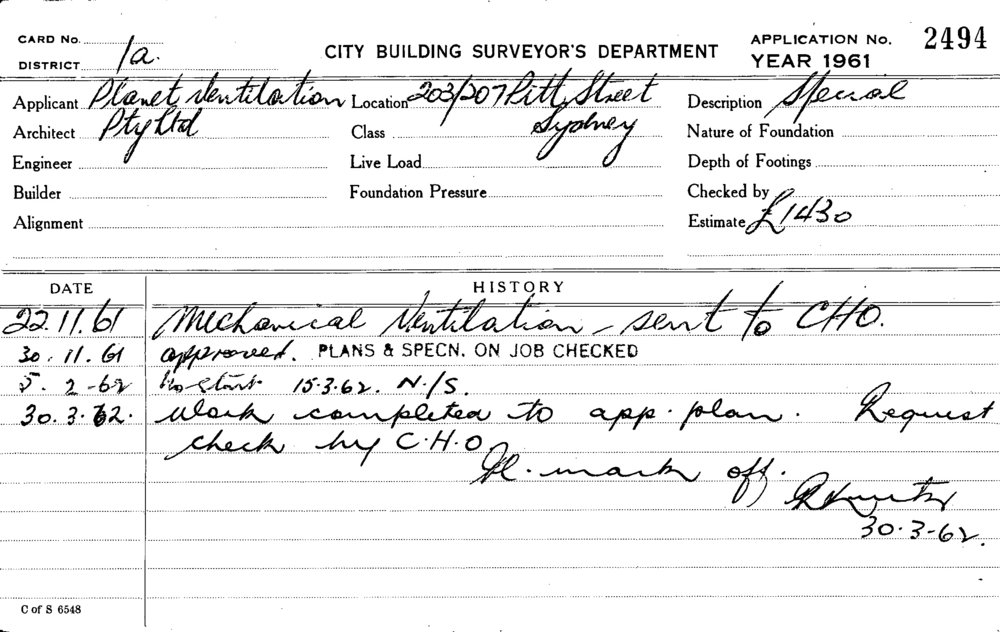 CARD No. 1a. CITY BUILDING SURVEYOR'S DEPARTMENT APPLICATION No. 2494
DISTRICT YEAR 1961
Applicant Planet Ventilation Location 203/207 Pitt Street Description Special
Architect Pty Ltd Class Sydney Nature of Foundation
Engineer Live Load Depth of Footings
Builder Foundation Pressure Checked by
Alignment Estimate £1430
DATE HISTORY
22.11.61 Mechanical Ventilation - sent to CHO.
30.11.61 approved. PLANS & SPECN. ON JOB CHECKED
5.2-62 No start. 15.3.62. N./S.
30.3.62. Work completed to app. plan. Request
check by C.H.O.
mark off.
30.3-62.
C of S 6548